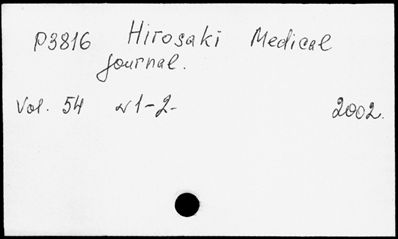 P3816 Hirosaki Medical
journal.
Vol. 54 N1-2- 2002.